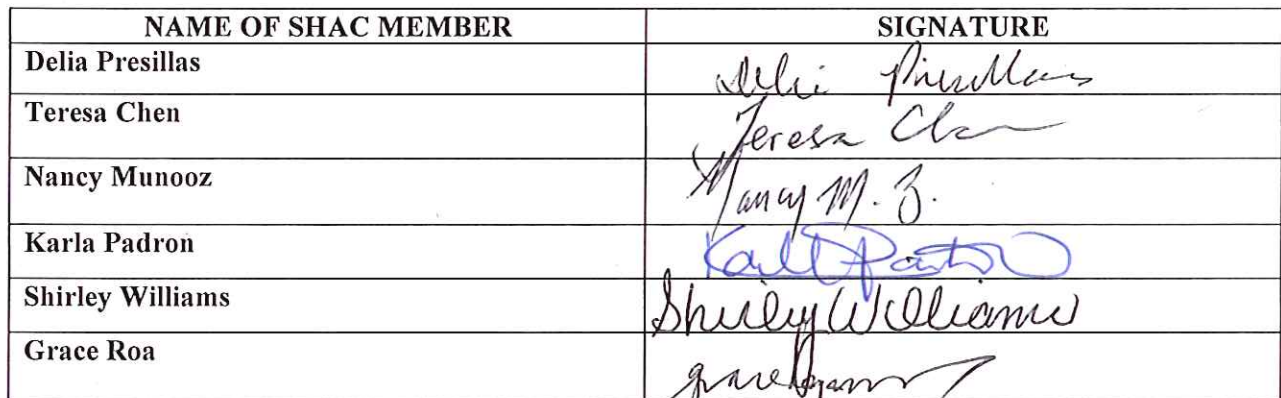 NAME OF SHAC MEMBER SIGNATURE
Delia Presillas Delia Presillas
Teresa Chen Teresa Chen
Nancy Munooz Nancy M. Z.
Karla Padron
Shirley Williams Shirley Williams
Grace Roa